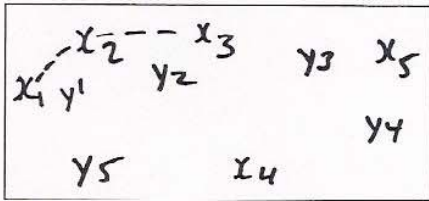 x2 x3 y3 x5
x1 y1 y2
y4
y5 x4